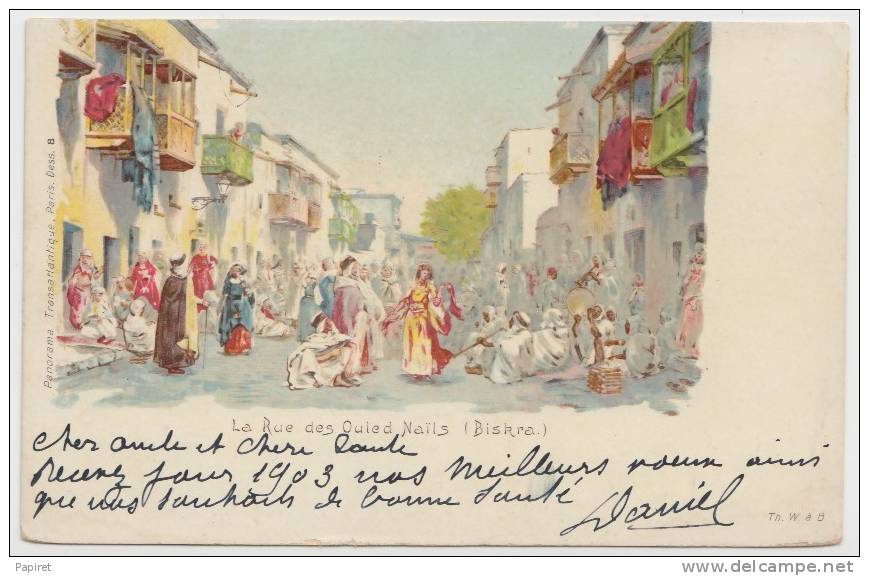 Panorama Transatlantique, Paris. Dess. 8
La Rue des Ouled Naïls (Biskra.)
Cher oncle et chère Tante
Recevez pour 1903 nos meilleurs voeux ainsi
que nos souhaits de bonne santé
Daniel
Th. W. à B
Papiret
www.delcampe.net